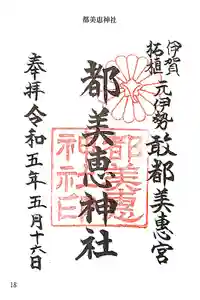 都美恵神社
伊賀
柘植
元伊勢敢都美恵宮
都美恵神社
奉拝令和五年五月十六日
都美恵
神社印
18